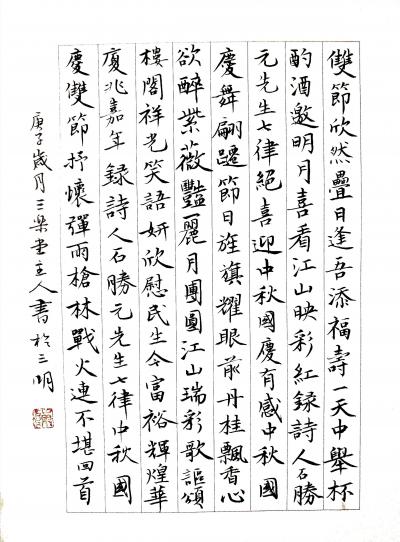 雙節欣然疊日逢吾添福壽一天中舉杯
酌酒邀明月喜看江山映彩紅錄詩人石勝
元先生七律絕喜迎中秋國慶有感中秋國
慶舞翩躚節日旌旗耀眼前丹桂飄香心
欲醉紫薇豔麗月團圓江山瑞彩歌謳頌
樓閣祥光笑語妍欣慰民生今富裕輝煌華
廈兆嘉年錄詩人石勝元先生七律中秋國
慶雙節抒懷彈雨槍林戰火連不堪回首
庚子歲月三樂堂主人書於三明